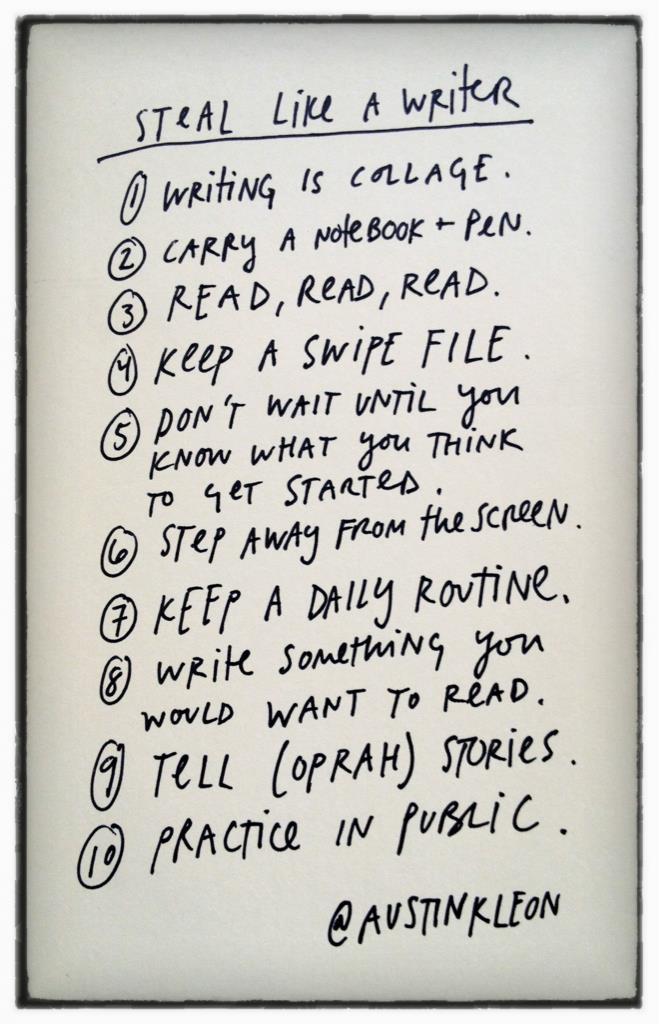 STEAL LIKE A WRITER
① WRITING IS COLLAGE.
② CARRY A NOTEBOOK + PEN.
③ READ, READ, READ.
④ KEEP A SWIPE FILE.
⑤ DON'T WAIT UNTIL YOU
KNOW WHAT YOU THINK
TO GET STARTED.
⑥ STEP AWAY FROM the SCREEN.
⑦ KEEP A DAILY ROUTINE.
⑧ WRITE SOMETHING YOU
WOULD WANT TO READ.
⑨ TELL (OPRAH) STORIES.
⑩ PRACTICE IN PUBLIC.
@AUSTINKLEON